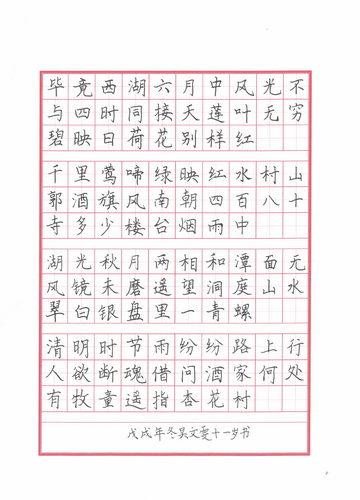 毕竟西湖六月中风光不
与四时同接天莲叶无穷
碧映日荷花别样红
千里莺啼绿映红水村山
郭酒旗风南朝四百八十
寺多少楼台烟雨中
湖光秋月两相和潭面无
风镜未磨遥望洞庭山水
翠白银盘里一青螺
清明时节雨纷纷路上行
人欲断魂借问酒家何处
有牧童遥指杏花村
戊戌年冬吴文雯十一岁书